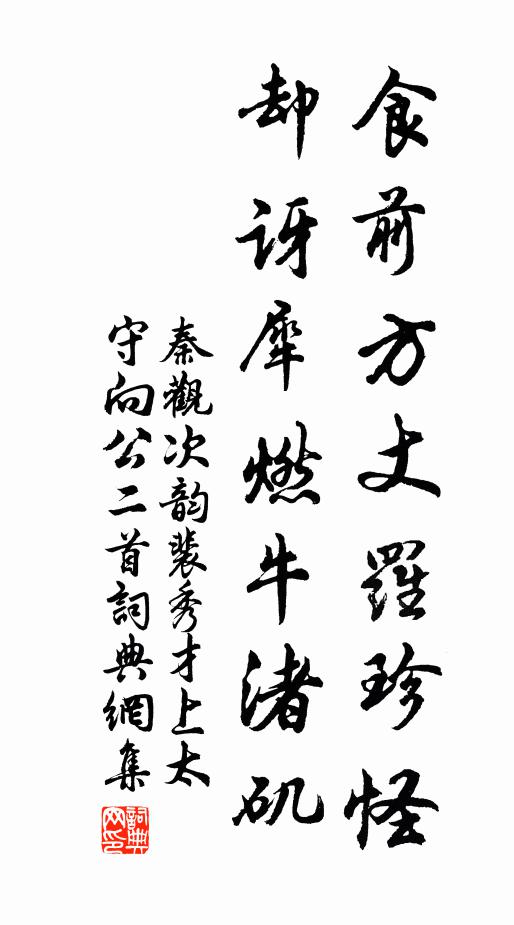 食前方丈羅珍怪
却訝犀燃牛渚矶
秦觀次韵裴秀才上太
守向公二首詞典網集
詞典
网印